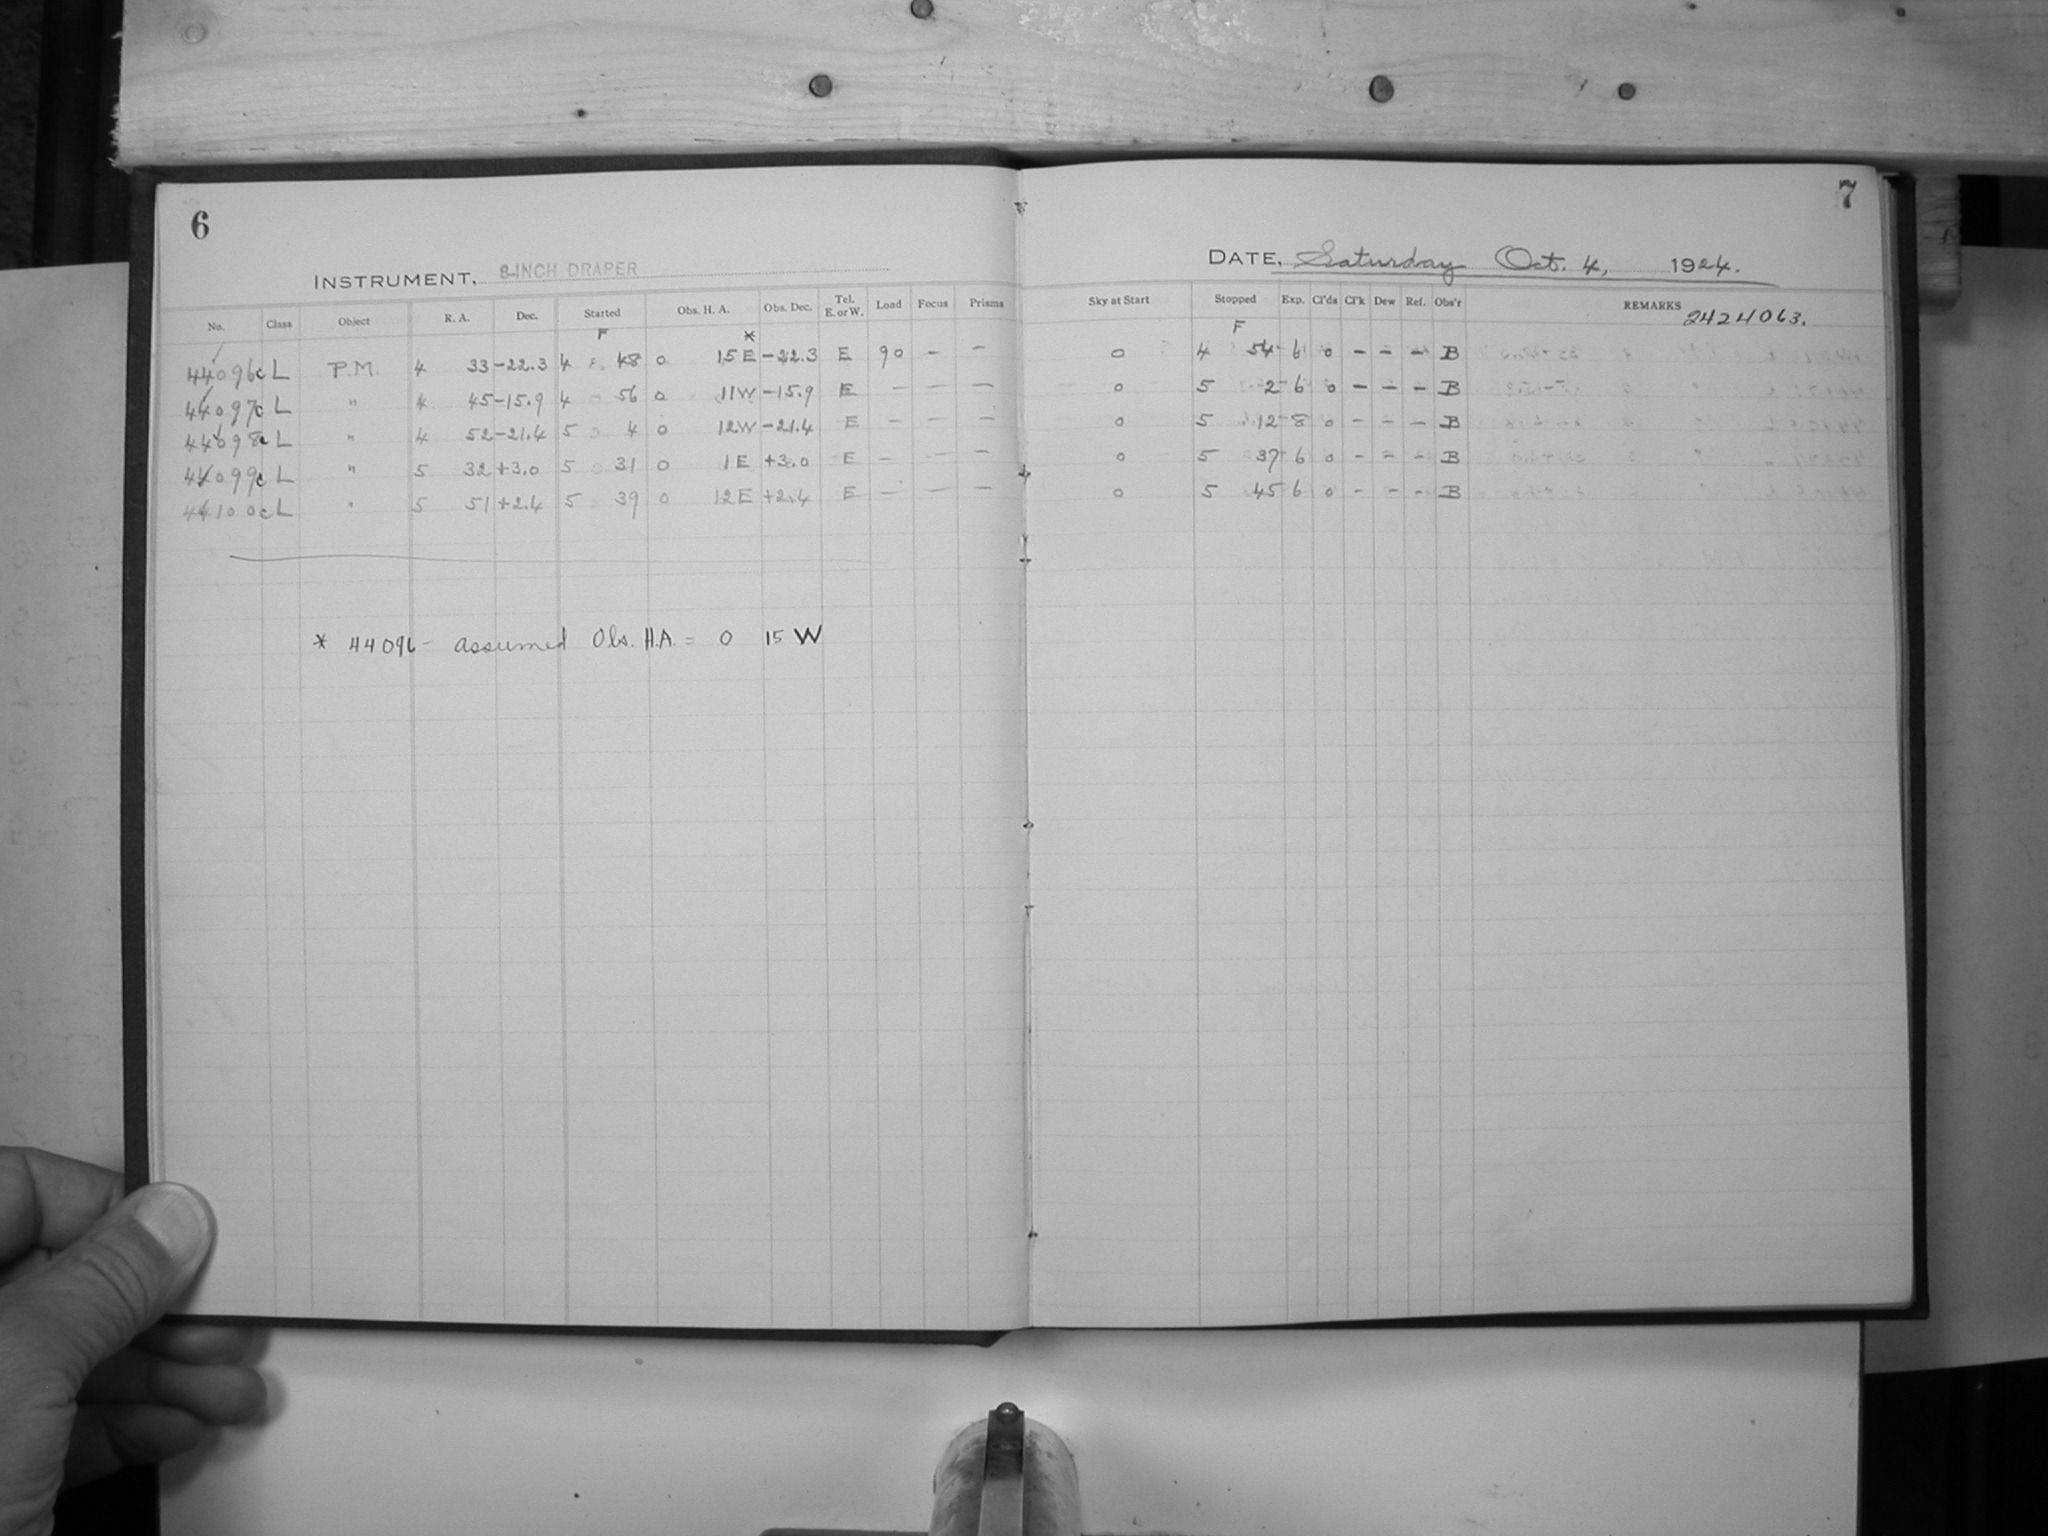 6
INSTRUMENT, 8-INCH DRAPER
No. Class Object R. A. Dec. Started Obs. H. A. Obs. Dec. Tel. E. or W. Load Focus Prisms
F *
44096c L P.M. 4 33 -22.3 4 48 0 15 E -22.3 E 90 - -
44097c L " 4 45 -15.9 4 56 0 11 W -15.9 E - - -
44098c L " 4 52 -21.4 5 4 0 12 W -21.4 E - - -
44099c L " 5 32 +3.0 5 31 0 1 E +3.0 E - - -
44100c L " 5 51 +2.4 5 39 0 12 E +2.4 E - - -
* 44096 - assumed Obs. H.A. = 0 15 W
7
DATE, Saturday Oct. 4, 1924.
Sky at Start Stopped Exp. Cl'ds Cl'k Dew Ref. Obs'r REMARKS 2424063.
F
0 4 54 - 6 0 - - - B
0 5 2 - 6 0 - - - B
0 5 12 - 8 0 - - - B
0 5 37 - 6 0 - - - B
0 5 45 6 0 - - - B